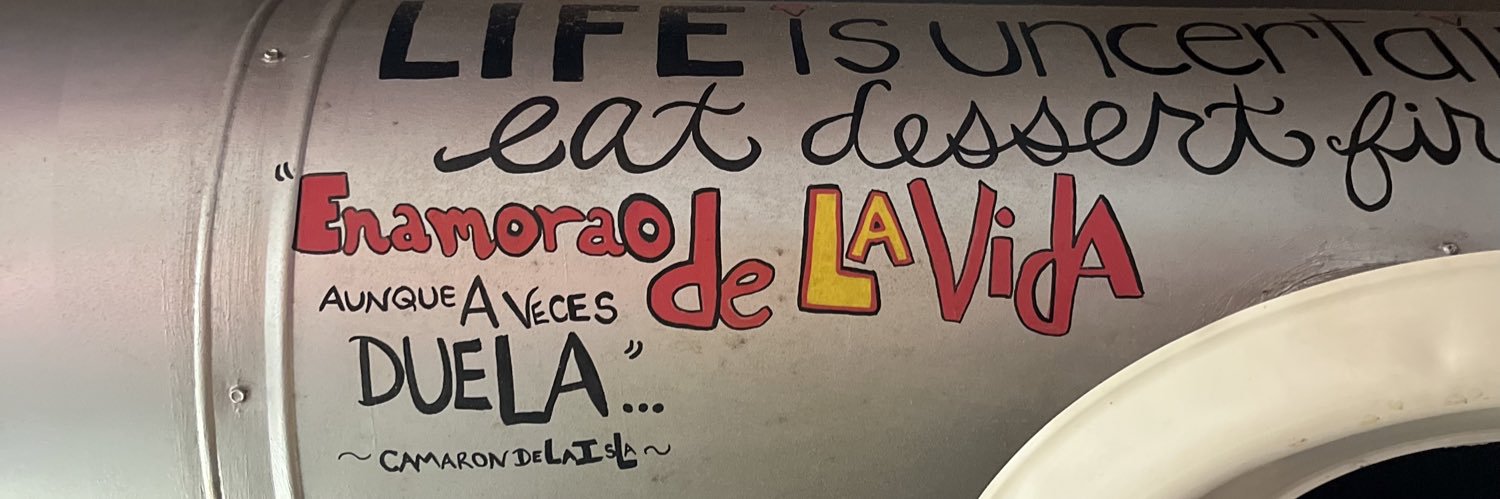 LIFE is uncertai
eat dessert fir
"Enamorao de LA VidA
AUNQUE A VECES
DUELA"...
~ CAMARON DE LA ISLA ~